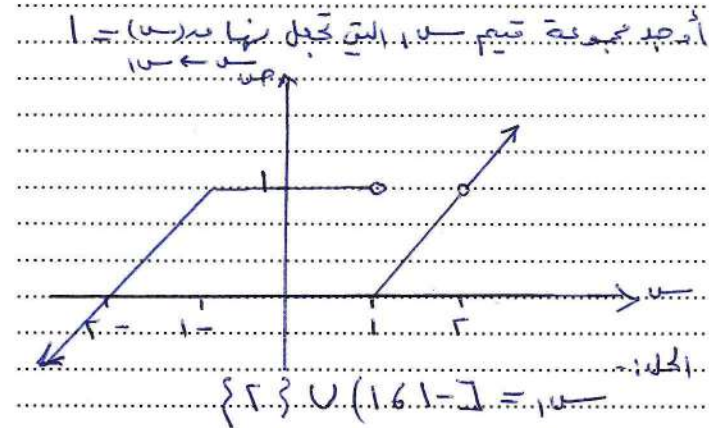 أوجد مجموعة قيم س١ التي تجعل نهــا ق(س) = ١
س ← س١
ص
١
س
-٢ -١ ١ ٢
الحل:-
س١ = [-١، ١) ∪ {٢}